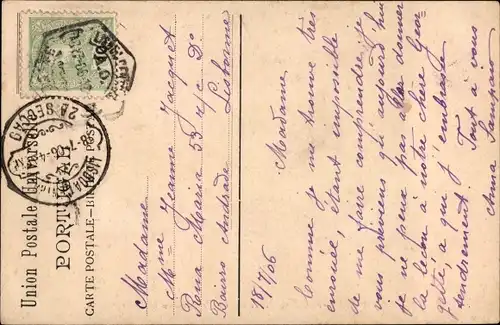 Union Postale Universelle
PORTUGAL
CARTE POSTALE—BILHETE POSTAL
Madame
Mme Jeanne Jacquet
Rua Maria 53 r/c D.
Bairro Andrade Lisbonne
18/7/06
Madame
Comme je me trouve très
enrouée, étant impossible
de me faire comprendre, je
vous préviens qu'aujourd'hui
je ne peux pas donner
la leçon à notre chère Geor-
gette, à qui j'embrasse
tendrement. Tout à vous